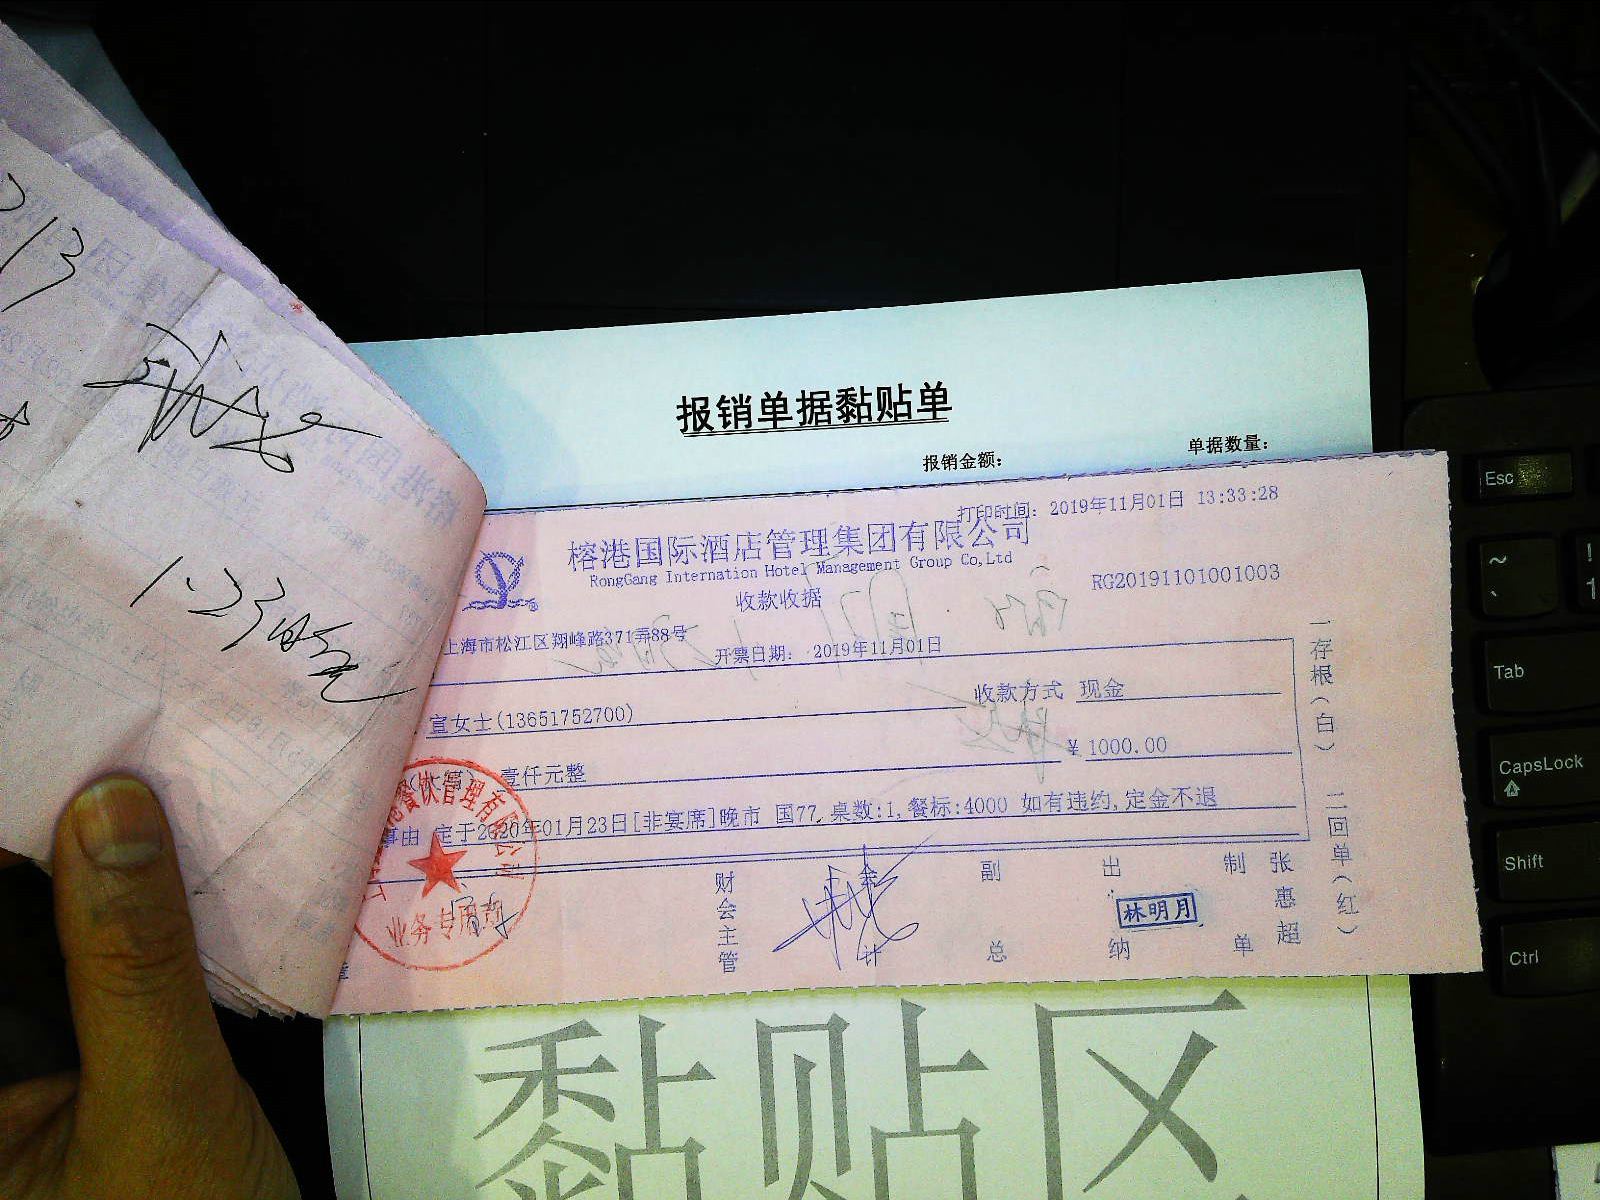 报销单据黏贴单
报销金额：
单据数量：
打印时间：2019年11月01日 13:33:28
榕港国际酒店管理集团有限公司
RongGang Internation Hotel Management Group Co,Ltd
RG20191101001003
收款收据
上海市松江区翔峰路371弄88号
开票日期： 2019年11月01日
收款方式 现金
宣女士(13651752700)
¥ 1000.00
壹仟元整
事由 定于2020年01月23日[非宴席]晚市 国77, 桌数:1,餐标:4000 如有违约,定金不退
财会主管
会计
副总
出纳
林明月
制单
张惠超
一存根(白)
二回单(红)
餐饮管理有限公司
业务专用章
黏贴区
1.23
Esc
~
!
1
Tab
CapsLock
Shift
Ctrl